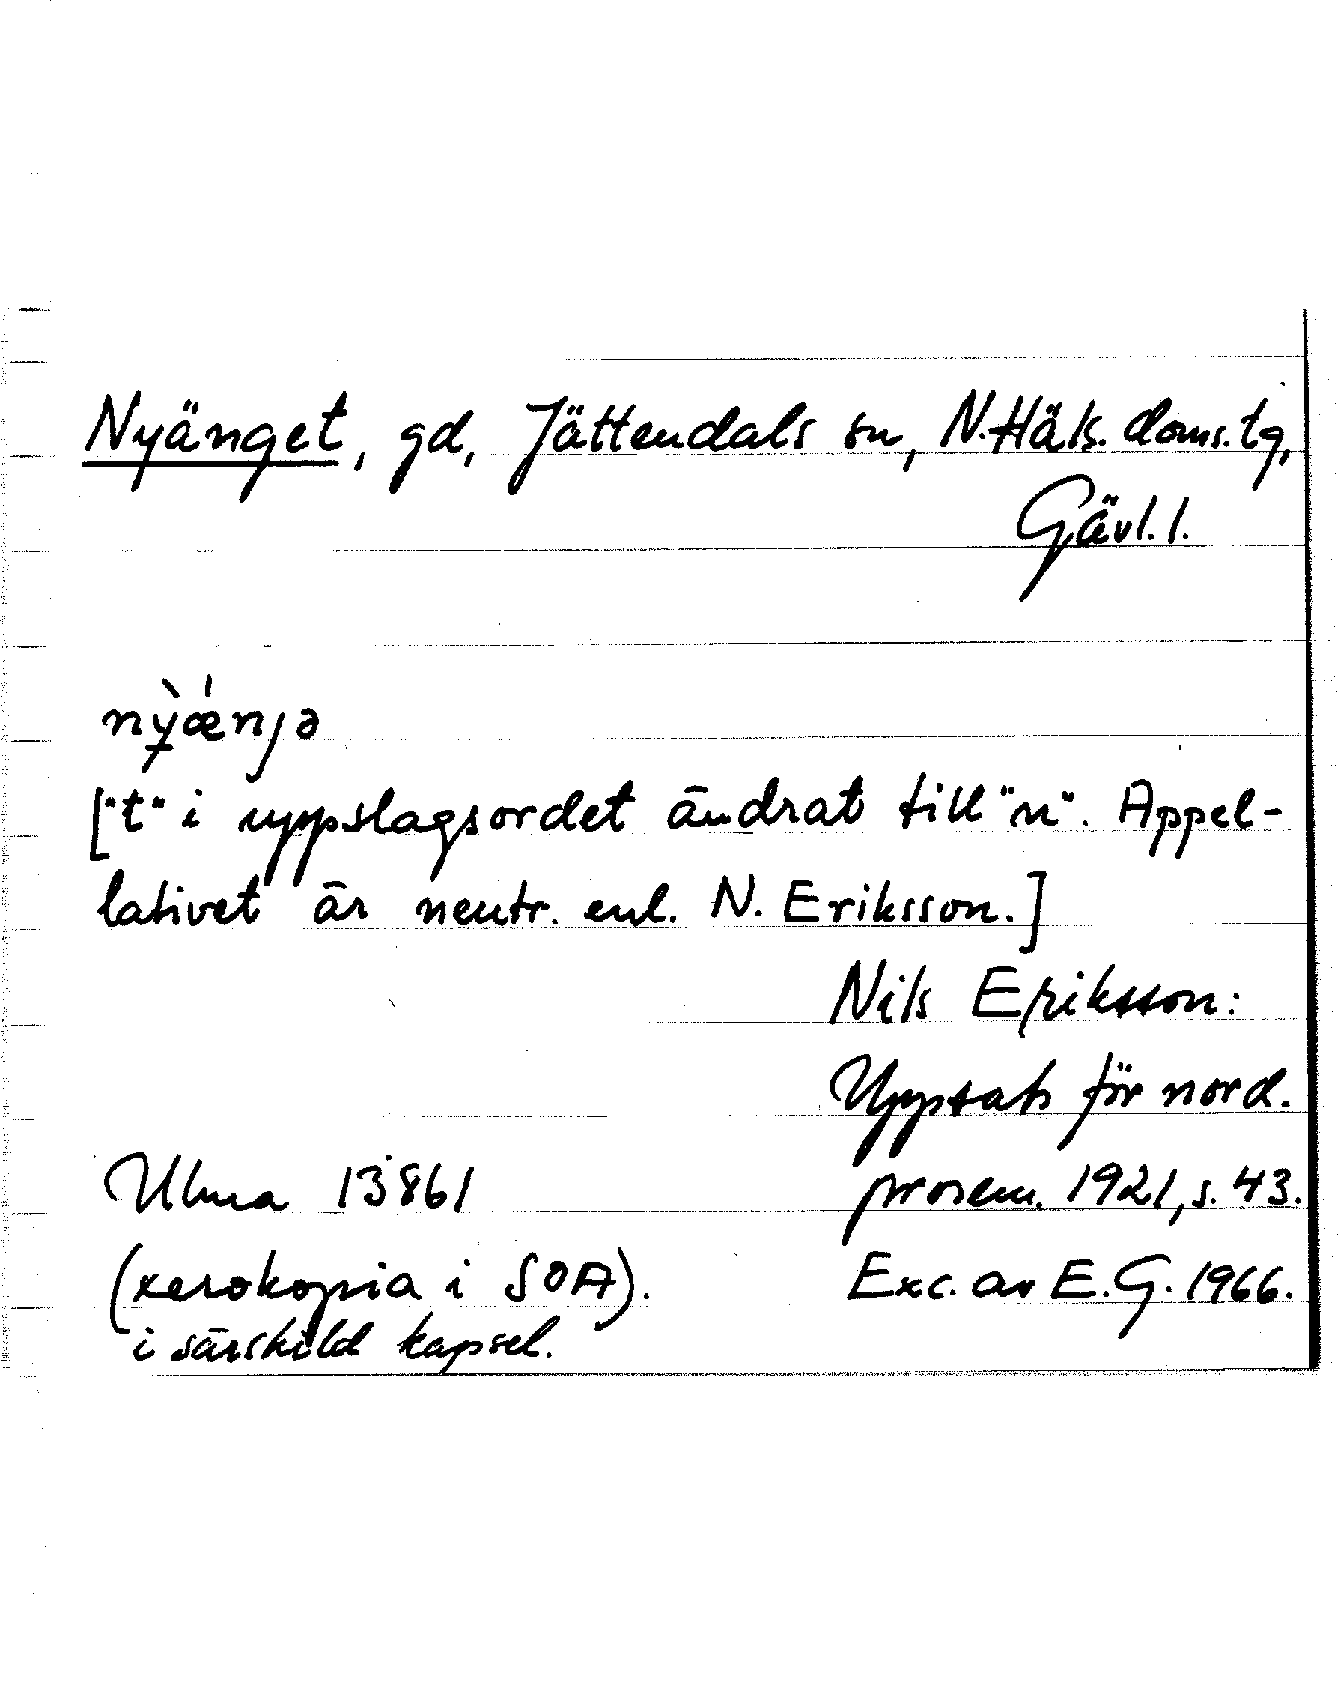 Nyänget, gd, Jättendals sn, N. Häls. doms. tg,
Gävl. l.
nỳ̱ǽnjə
["t" i uppslagsordet ändrat till "n". Appel-
lativet är neutr. enl. N. Eriksson.]
Nils Eriksson:
Uppsats för nord.
Ulma 13861 prosem. 1921, s. 43.
(xerokopia i SOA). Exc. av E.G. 1966.
i särskild kapsel.